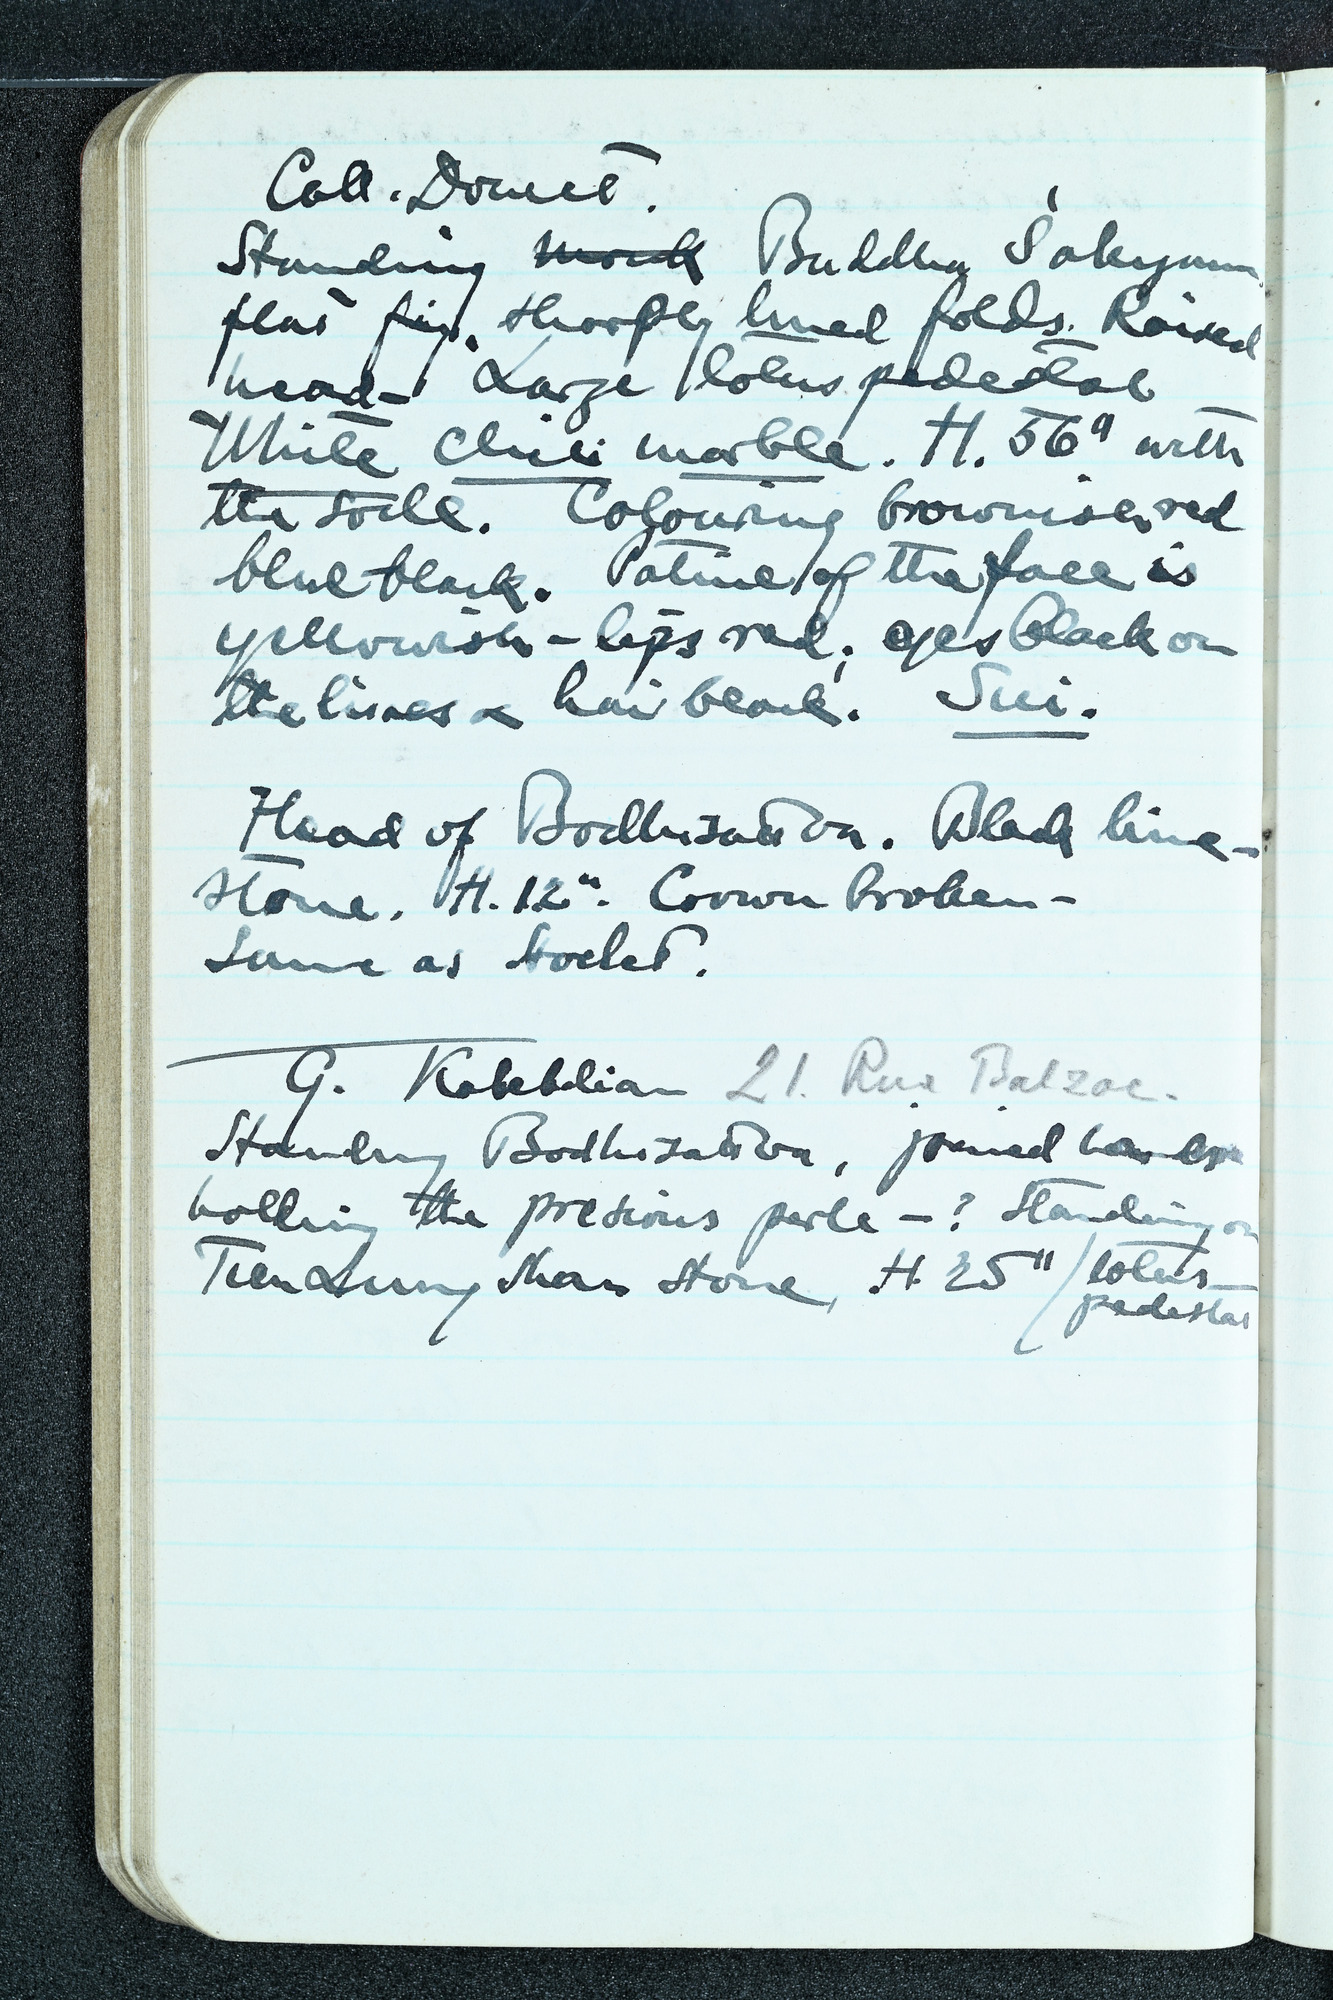 Coll. Doucet.
Standing ~~monk~~ Buddha Śakyamuni
flat fig. sharply lined folds. Raised
head - Large lotus pedestal
White Chili marble. H. 56" with
the socle. Colouring brownish, red
blue black. Patine of the face is
yellowish - lips red, eyes black on
the lines & hair black. Sui.
Head of Bodhisattva. Black lime-
stone. H. 12". Crown broken -
Same as Stoclet.
G. Kalebdian 21. Rue Balzac.
Standing Bodhisattva, joined hands
holding the presious perle - ? Standing on
lotus
pedestal
Tien Lung Shan stone, H. 25"